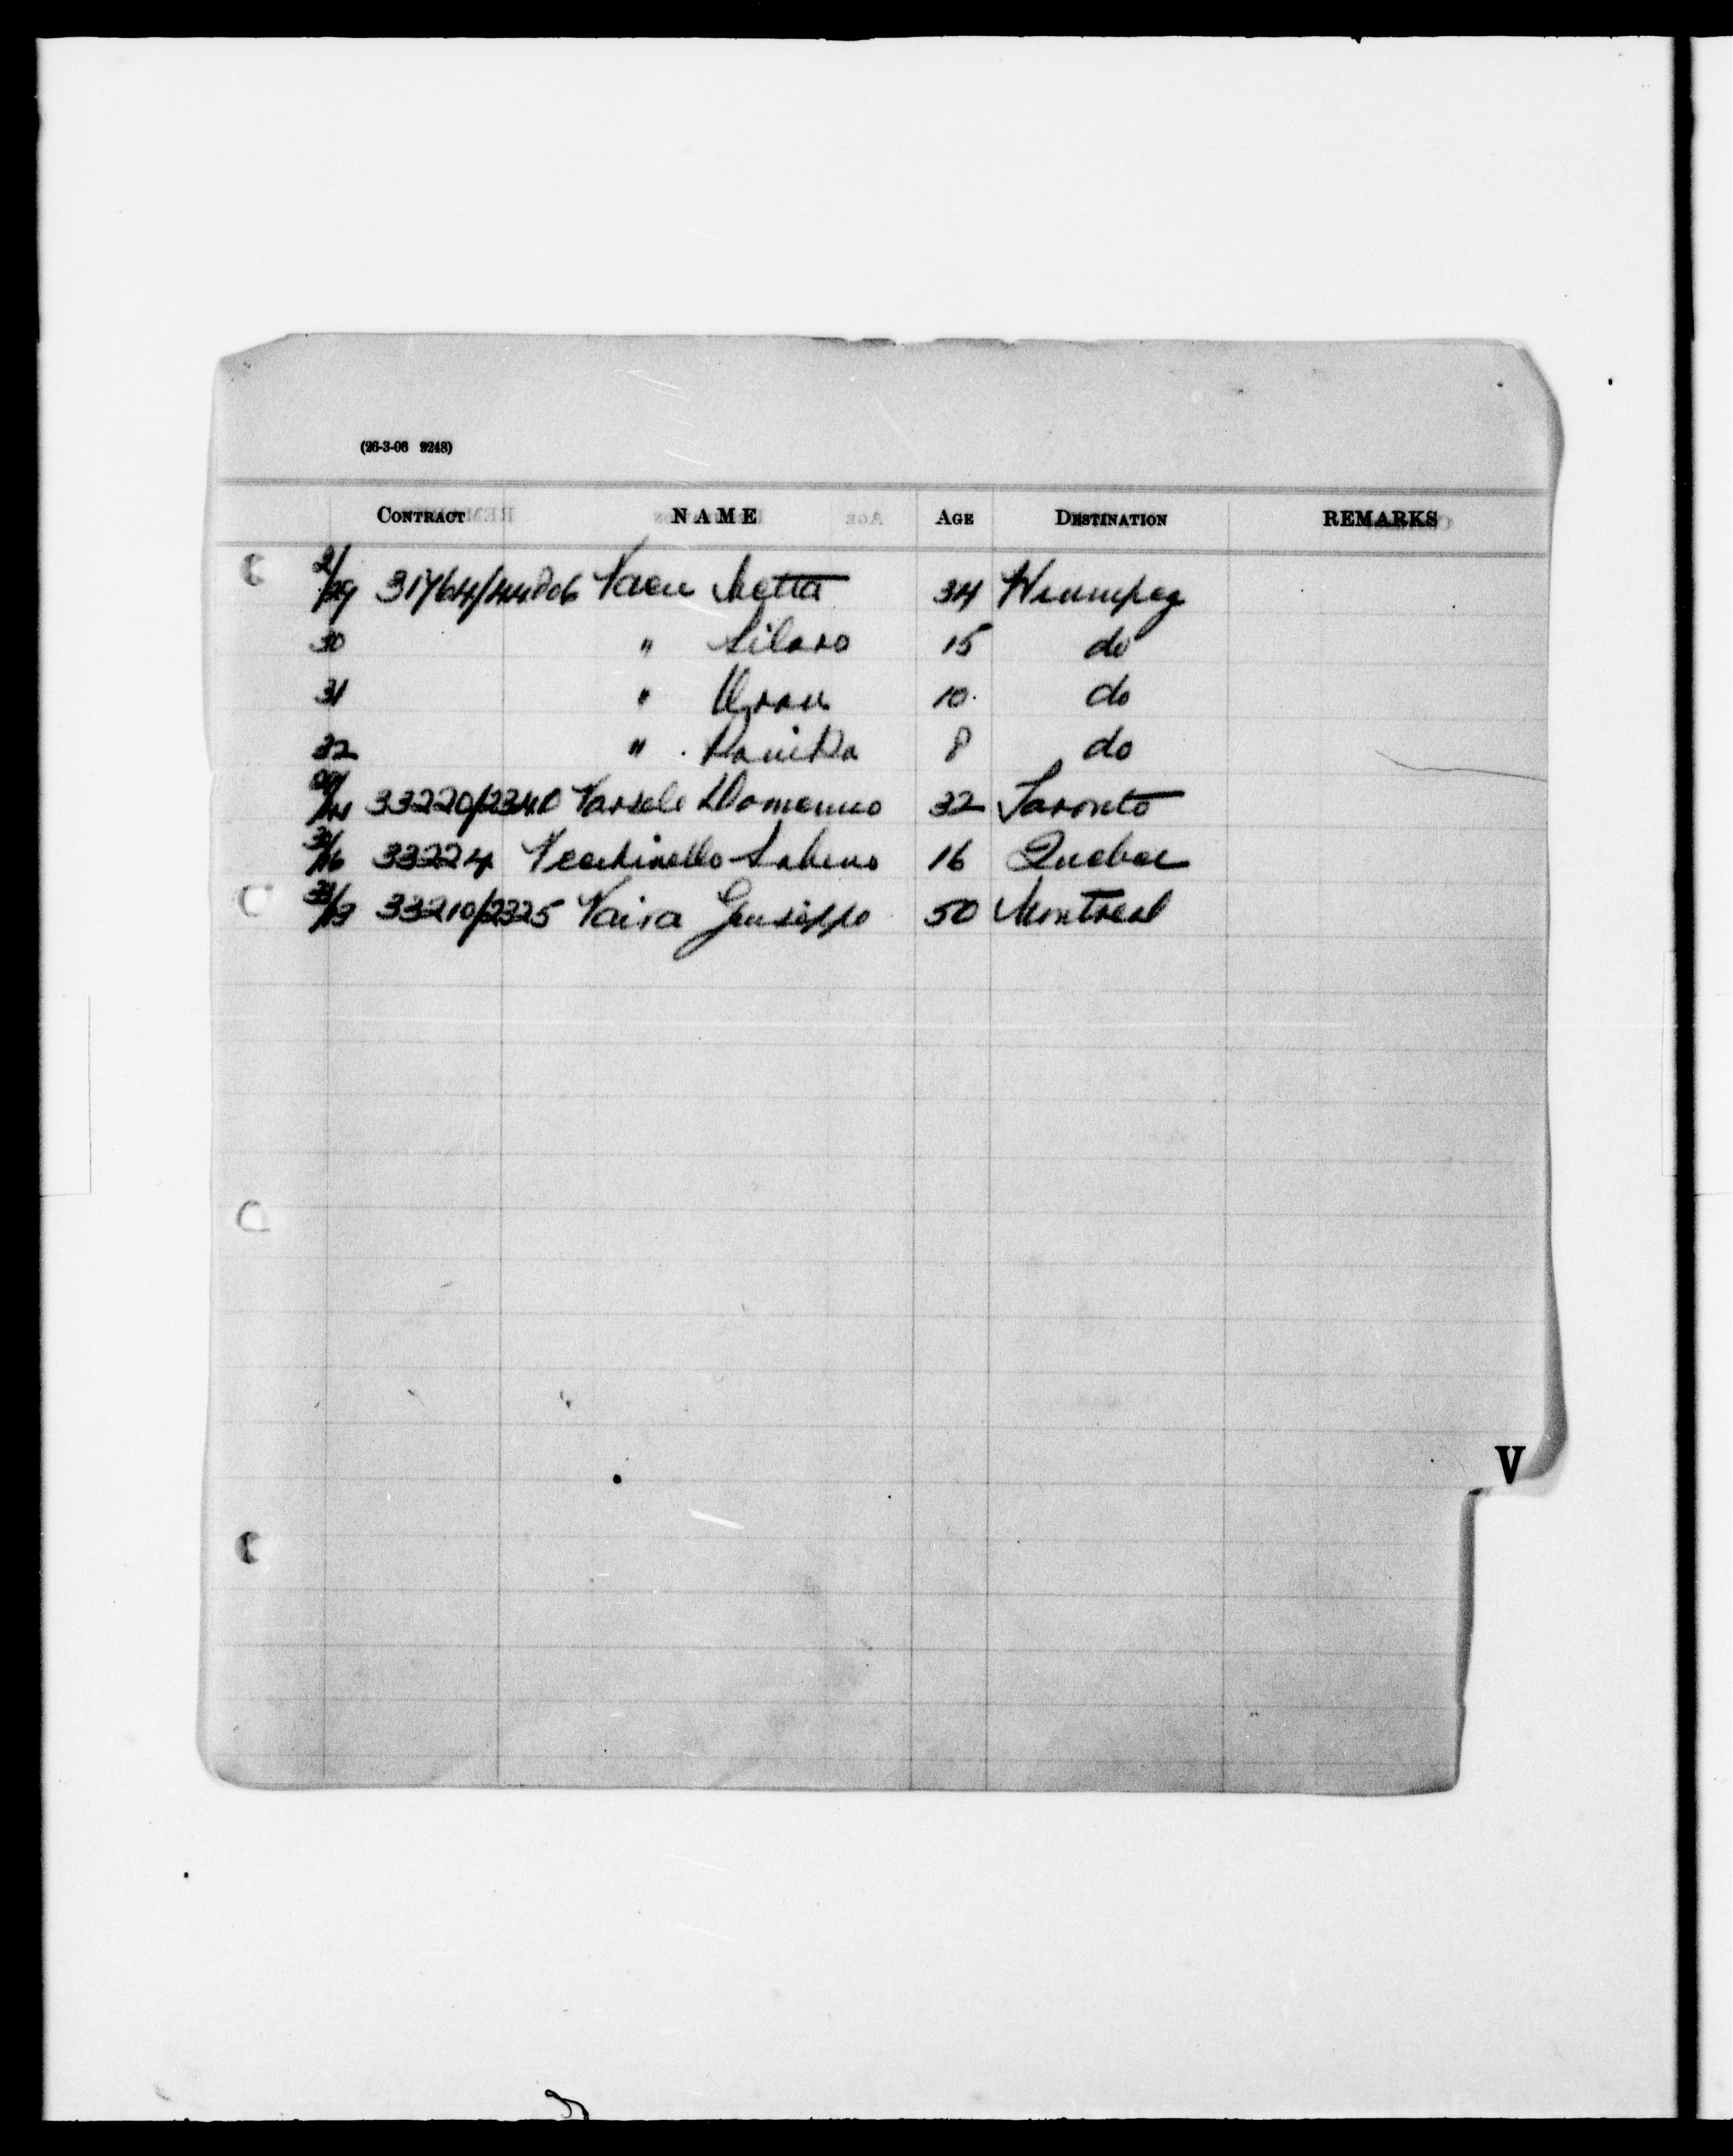 (26-3-06 9248)
CONTRACT NAME AGE DESTINATION REMARKS
2/29 31764/44806 Vaeu Metta 34 Winnipeg
30 " Silaro 15 do
31 " 10 do
32 " 8 do
33220/2340 Varsele Domenico 32 Toronto
33224 Vecchinello Sabeno 16 Quebec
33210/2325 Vaira Geuseppe 50 Montreal
V